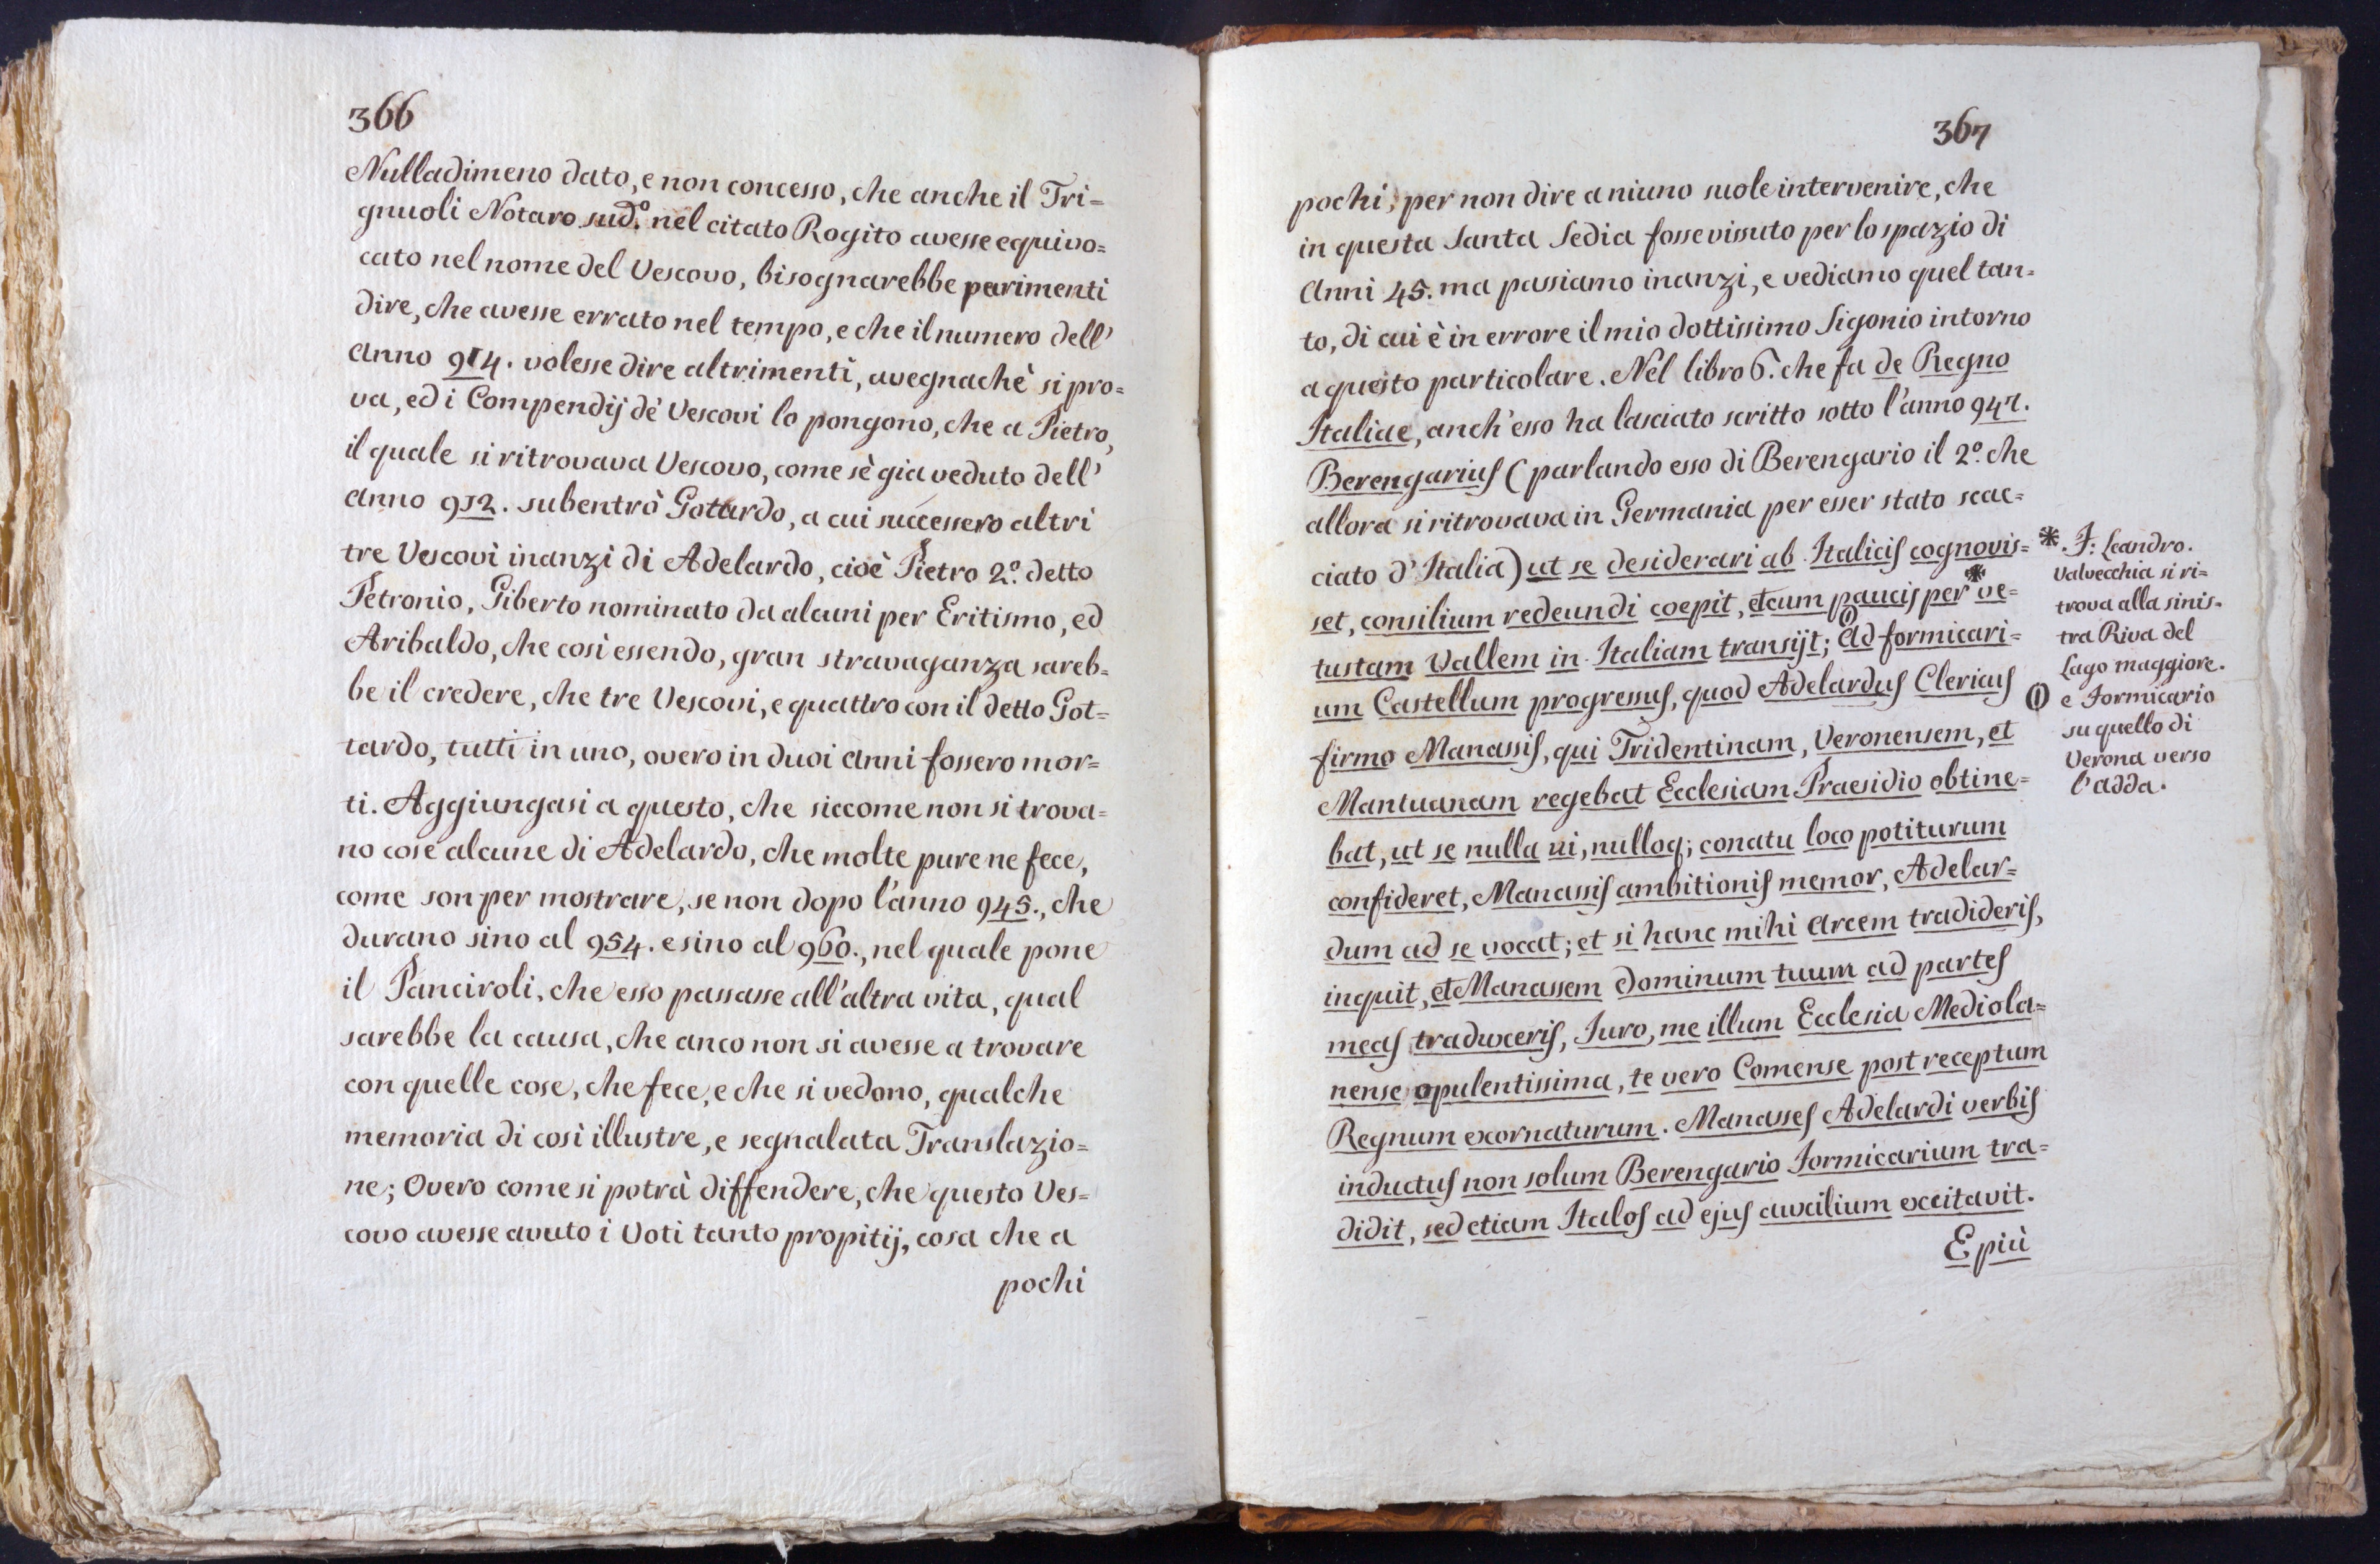 366
Nulladimeno dato, e non concesso, che anche il Tri=
gnuoli Notaro sud.º nel citato Rogito avesse equivo=
cato nel nome del Vescovo, bisognarebbe parimenti
dire, che avesse errato nel tempo, e che il numero dell'
Anno 914. volesse dire altrimenti, avegnachè si pro=
va, ed i Compendij dè Vescovi lo pongono, che a Pietro,
il quale si ritrovava Vescovo, come sè gia veduto dell'
Anno 912. subentrò Gottardo, a cui successero altri
tre Vescovi inanzi di Adelardo, cioè Pietro 2º. detto
Petronio, Giberto nominato da alcuni per Eritismo, ed
Aribaldo, che cosi essendo, gran stravaganza sareb=
be il credere, che tre Vescovi, e quattro con il detto Got=
tardo, tutti in uno, overo in duoi Anni fossero mor=
ti. Aggiungasi a questo, che siccome non si trova=
no cose alcune di Adelardo, che molte pure ne fece,
come son per mostrare, se non dopo l'anno 945., che
durano sino al 954. e sino al 960., nel quale pone
il Panciroli, che esso passasse all'altra vita, qual
sarebbe la causa, che anco non si avesse a trovare
con quelle cose, che fece, e che si vedono, qualche
memoria di così illustre, e segnalata Translazio=
ne; Overo come si potrà diffendere, che questo Ves=
covo avesse avuto i Voti tanto propitij, cosa che a
pochi
367
pochi, per non dire a niuno suole intervenire, che
in questa Santa Sedia fosse vissuto per lo spazio di
Anni 45. ma passiamo inanzi, e vediamo quel tan=
to, di cui è in errore il mio dottissimo Sigonio intorno
a questo particolare. Nel libro 6. che fa de Regno
Italiae, anch'esso ha lasciato scritto sotto l'anno 947.
Berengarius (parlando esso di Berengario il 2º. che
allora si ritrovava in Germania per esser stato scac=
ciato d'Italia) ut se desiderari ab Italicis cognovis=
set, consilium redeundi coepit, et cum paucis per * ve=
tustam Vallem in Italiam transijt; Ⓘ Ad formicari=
um Castellum progressus, quod Adelardus Clericus
firmo Manassis, qui Tridentinam, Veronensem, et
Mantuanam regebat Ecclesiam Praesidio obtine=
bat, ut se nulla vi, nulloq; conatu loco potiturum
confideret, Manassis ambitionis memor, Adelar=
dum ad se vocat; et si hanc mihi Arcem tradideris,
inquit, et Manassem dominum tuum ad partes
meas traduxeris, Iuro, me illum Ecclesia Mediola=
nense opulentissima, te vero Comense post receptum
Regnum exornaturum. Manasses Adelardi verbis
inductus non solum Berengario Formicarium tra=
didit, sed etiam Italos ad ejus auxilium excitavit.
E più
*. F: Leandro.
Valvecchia si ri=
trova alla sinis=
tra Riva del
Lago maggiore.
Ⓘ e Formicario
su quello di
Verona verso
l'adda.